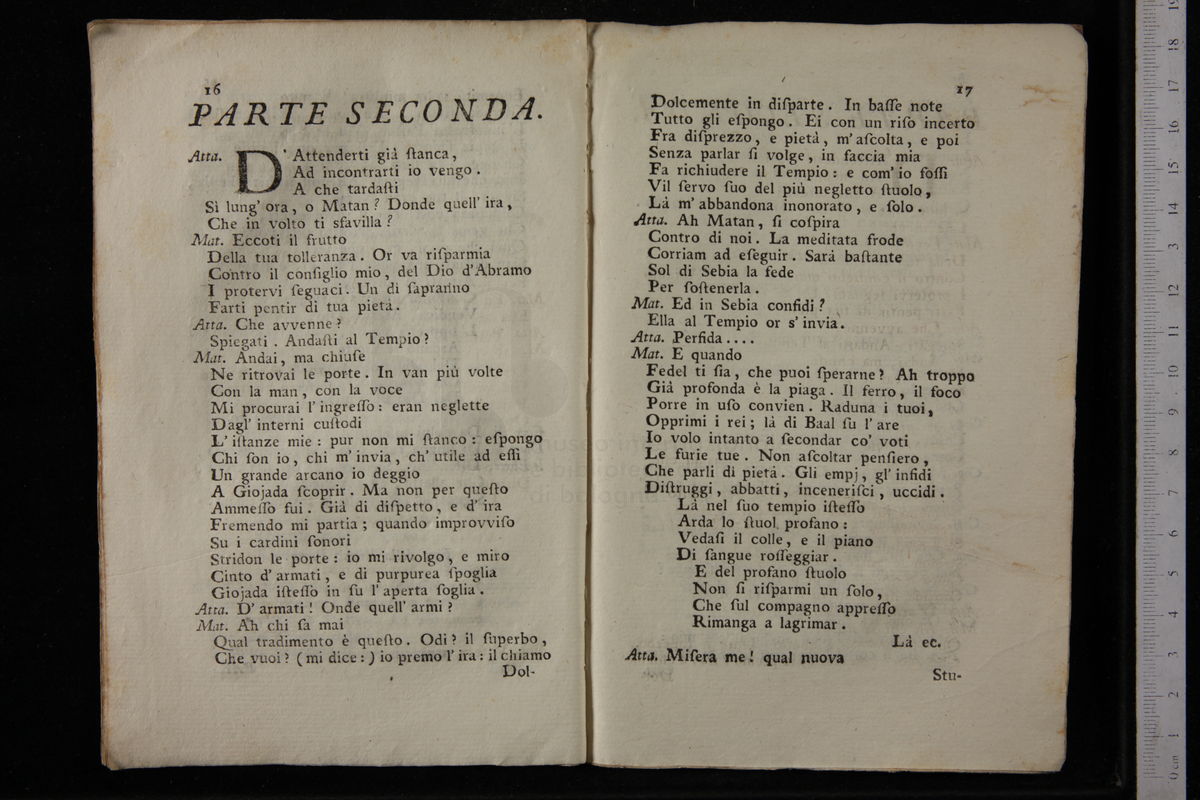 16
PARTE SECONDA.
Atta. D' Attenderti già ſtanca,
Ad incontrarti io vengo.
A che tardaſti
Sì lung' ora, o Matan? Donde quell' ira,
Che in volto ti sfavilla?
Mat. Eccoti il frutto
Della tua tolleranza. Or va riſparmia
Contro il conſiglio mio, del Dio d'Abramo
I protervi ſeguaci. Un di ſaprariſno
Farti pentir di tua pietà.
Atta. Che avvenne?
Spiegati. Andaſti al Tempio?
Mat. Andai, ma chiuſe
Ne ritrovai le porte. In van più volte
Con la man, con la voce
Mi procurai l' ingreſſo: eran neglette
Dagl' interni cuſtodi
L' iſtanze mie: pur non mi ſtanco: eſpongo
Chi ſon io, chi m' invia, ch' utile ad eſſi
Un grande arcano io deggio
A Giojada ſcoprir. Ma non per queſto
Ammeſſo fui. Già di diſpetto, e d' ira
Fremendo mi partia; quando improvviſo
Su i cardini ſonori
Stridon le porte: io mi rivolgo, e miro
Cinto d' armati, e di purpurea ſpoglia
Giojada iſteſſo in ſu l' aperta ſoglia.
Atta. D' armati! Onde quell' armi?
Mat. Ah chi ſa mai
Qual tradimento è queſto. Odi? il ſuperbo,
Che vuoi? (mi dice:) io premo l' ira: il chiamo
Dol-
17
Dolcemente in diſparte. In baſſe note
Tutto gli eſpongo. Ei con un riſo incerto
Fra diſprezzo, e pietà, m' aſcolta, e poi
Senza parlar ſi volge, in faccia mia
Fa richiudere il Tempio: e com' io foſſi
Vil ſervo ſuo del più negletto ſtuolo,
Là m' abbandona inonorato, e ſolo.
Atta. Ah Matan, ſi coſpira
Contro di noi. La meditata frode
Corriam ad eſeguir. Sarà baſtante
Sol di Sebia la fede
Per ſoſtenerla.
Mat. Ed in Sebia confidi?
Ella al Tempio or s' invia.
Atta. Perfida....
Mat. E quando
Fedel ti ſia, che puoi ſperarne? Ah troppo
Già profonda è la piaga. Il ferro, il foco
Porre in uſo convien. Raduna i tuoi,
Opprimi i rei; là di Baal ſu l' are
Io volo intanto a ſecondar co' voti
Le furie tue. Non aſcoltar penſiero,
Che parli di pietà. Gli empj, gl' infidi
Diſtruggi, abbatti, inceneriſci, uccidi.
Là nel ſuo tempio iſteſſo
Arda lo ſtuol profano:
Vedaſi il colle, e il piano
Di ſangue roſſeggiar.
E del profano ſtuolo
Non ſi riſparmi un ſolo,
Che ſul compagno appreſſo
Rimanga a lagrimar.
Là ec.
Atta. Miſera me! qual nuova
Stu-